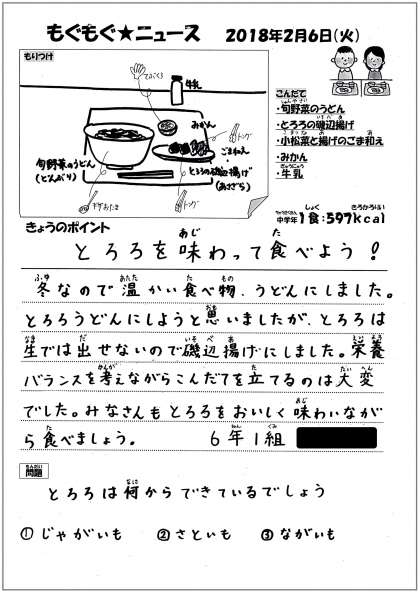 もぐもぐ★ニュース 2018年2月6日(火)
もりつけ
てぶくろ
牛乳
みかん
トング
ごまねぇ
旬野菜のうどん
(どんぶり)
とろろの磯辺揚げ
(あさざら)
トング
こんだて
・旬野菜のうどん
・とろろの磯辺揚げ
・小松菜と揚げのごま和え
・みかん
・牛乳
中学年1食:597kcal
きょうのポイント
とろろを味わって食べよう!
冬なので温かい食べ物、うどんにしました。
とろろうどんにしようと思いましたが、とろろは
生では出せないので磯辺揚げにしました。栄養
バランスを考えながらこんだてを立てるのは大変
でした。みなさんもとろろをおいしく味わいなが
ら食べましょう。 6年1組
問題
とろろは何からできているでしょう
①じゃがいも ②さといも ③ながいも